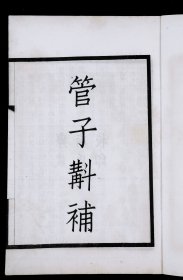 管子斠補